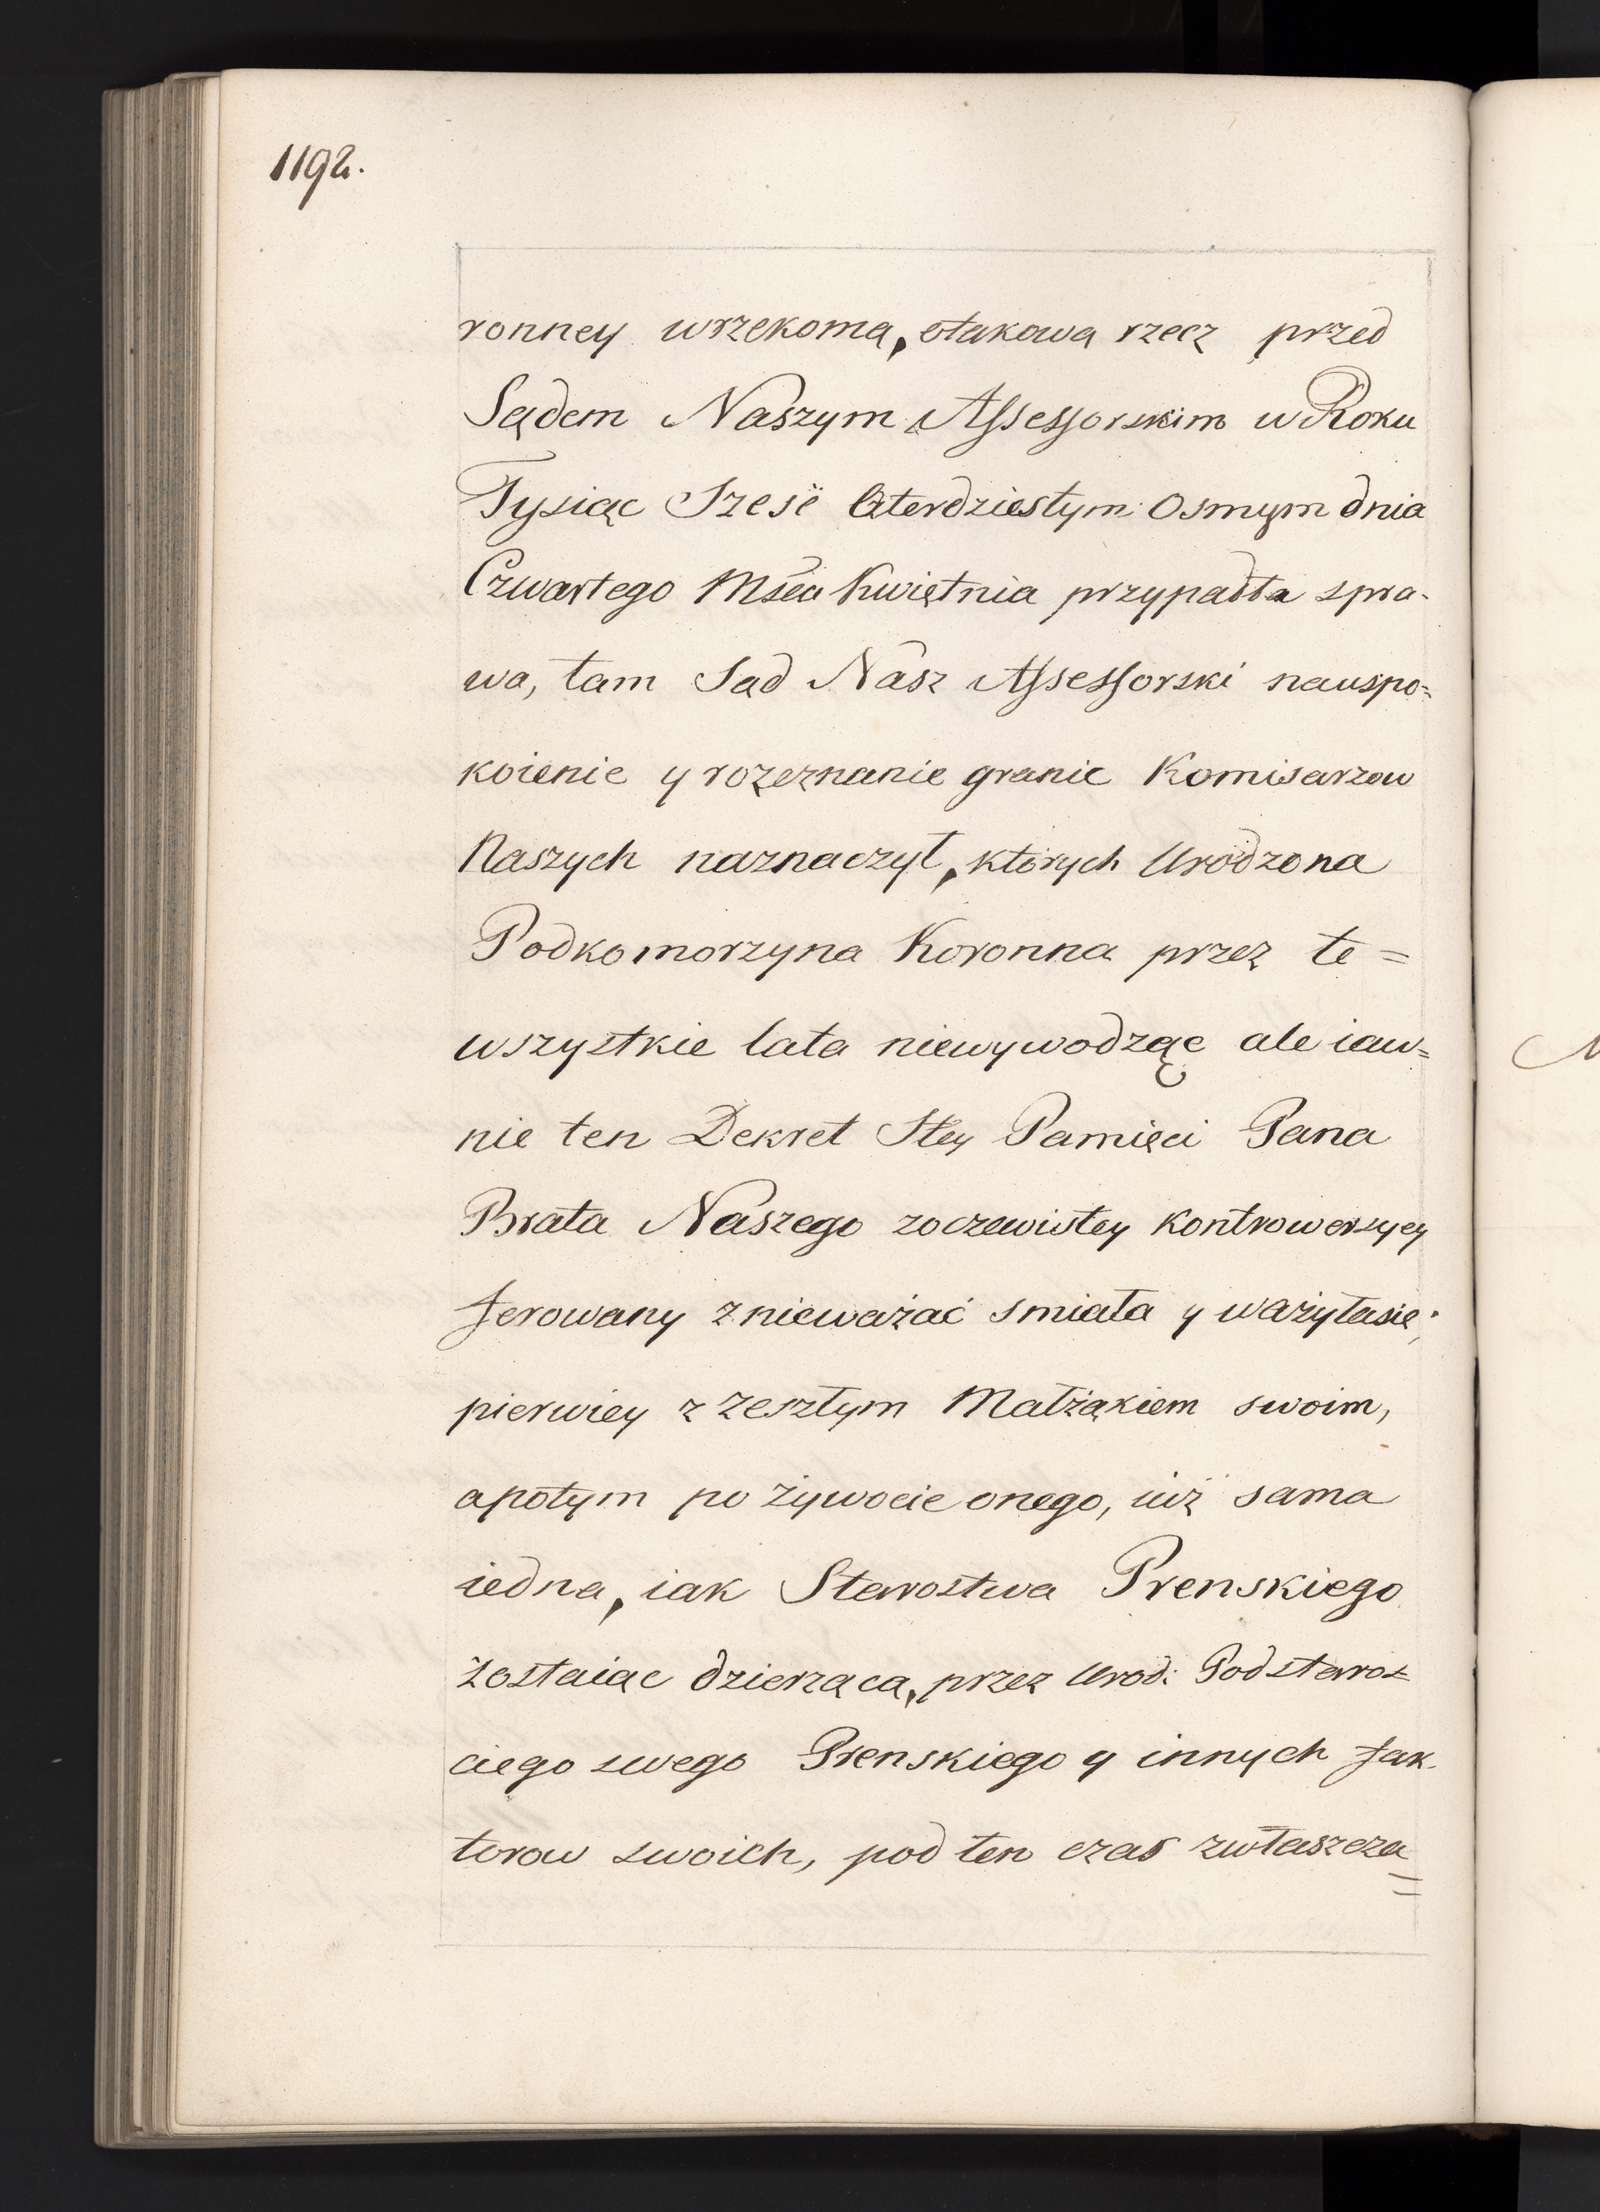 1192.
ronney wrzekoma, otakowa rzecz przed
Sądem Naszym Assessorskim w Roku
Tysiąc Szesć Czterdziestym Osmym dnia
Czwartego Mśca Kwiętnia przypadła spra-
wa, tam Sąd Nasz Assessorski nauspo=
koienie y rozeznanie granic Komisarzow
Naszych naznaczył, których Urodzona
Podkomorzyna Koronna przez te=
wszystkie lata niewywodząc ale iaw=
nie ten Dekret Stey Pamięci Pana
Brata Naszego zoczewistey kontrowersyey
ferowany znieważać smiała y ważyłasię;
pierwiey z zeszłym Małżąkiem swoim,
apotym po żywocie onego, iuż sama
iedna, iak Starostwa Prenskiego
zostaiąc dzierzącą, przez Urod: Podstaros=
ciego swego Prenskiego y innych fak-
torow swoich, pod ten czas zwłaszcza=